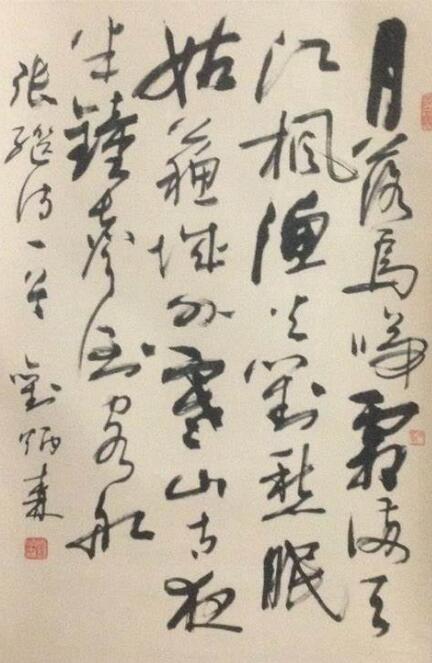 月落烏啼霜滿天
江楓漁火對愁眠
姑蘇城外寒山寺夜
半鐘聲到客船
張繼詩一首 劉炳森